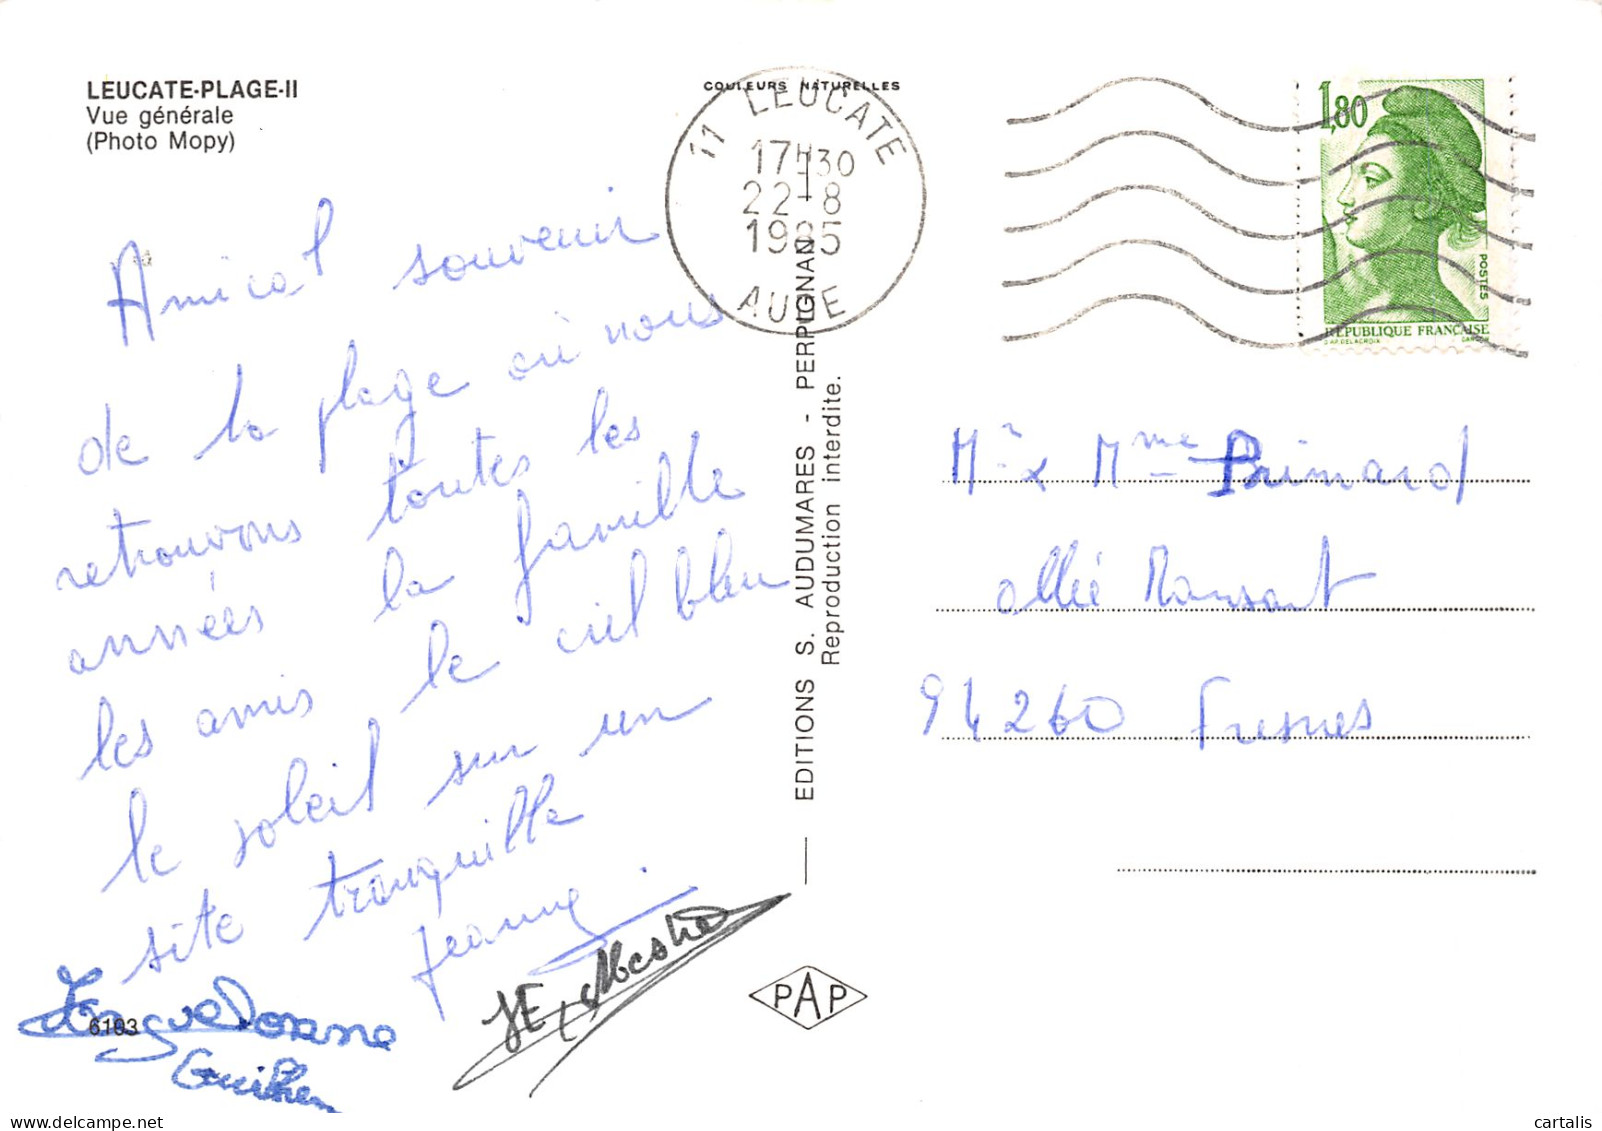 LEUCATE-PLAGE-II
Vue générale
(Photo Mopy)
COULEURS NATURELLES
11 LEUCATE
17H30
22-8
1985
AUDE
1,80
POSTES
RÉPUBLIQUE FRANÇAISE
D'AP. DELACROIX GANDON
Amical souvenir
de la plage où nous
retrouvons toutes les
années la famille
les amis le ciel bleu
le soleil sur un
site tranquille
Jeanne
Guilhem
6103
EDITIONS S. AUDUMARES - PERPIGNAN
Reproduction interdite.
PAP
Mr & Mme Brimard
allée Mansart
94260 Fresnes
delcampe.net
cartalis